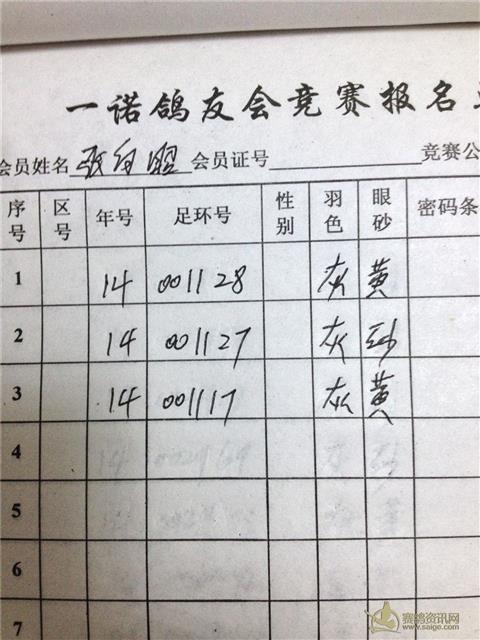 一诺鸽友会竞赛报名
会员姓名 张 会员证号 竞赛公
序号 区号 年号 足环号 性别 羽色 眼砂 密码条
1 14 001128 灰 黄
2 14 001127 灰 砂
3 14 001117 灰 黄
4
5
6
7
赛鸽资讯网
www.saige.com